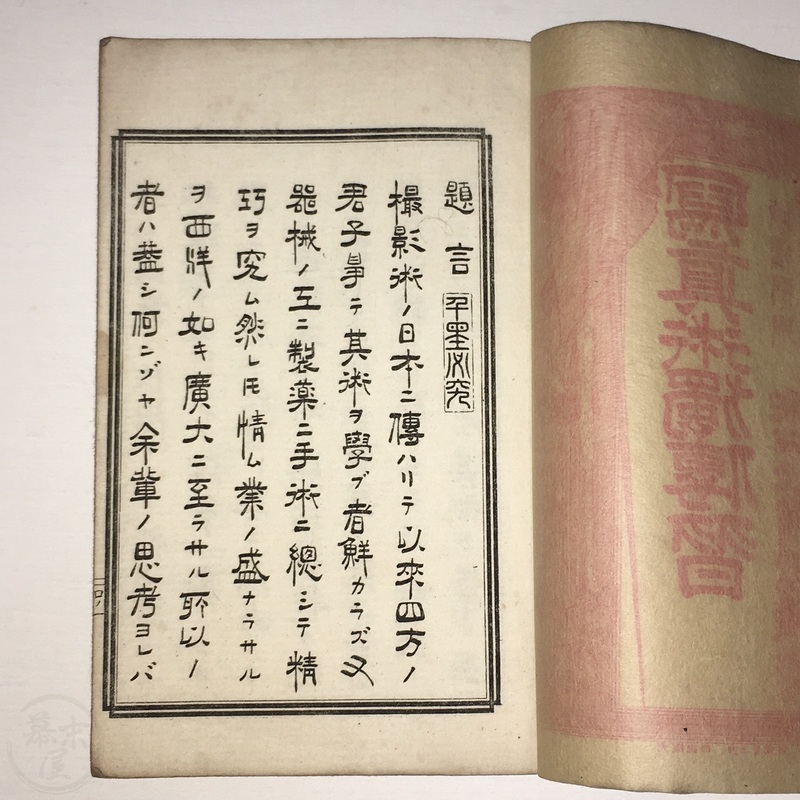 題言
撮影術ノ日本ニ傳ハリテ以來四方ノ
君子爭テ其術ヲ學ブ者鮮カラズ又
器械ノ工ニ製薬ニ手術ニ總シテ精
巧ヲ究ム然レ𪜈情ム業ノ盛ナラサル
ヲ西洋ノ如キ廣大ニ至ラサル所以ノ
者ハ蓋シ何ンゾヤ余輩ノ思考ヨレバ
寫真術獨
幕末屋